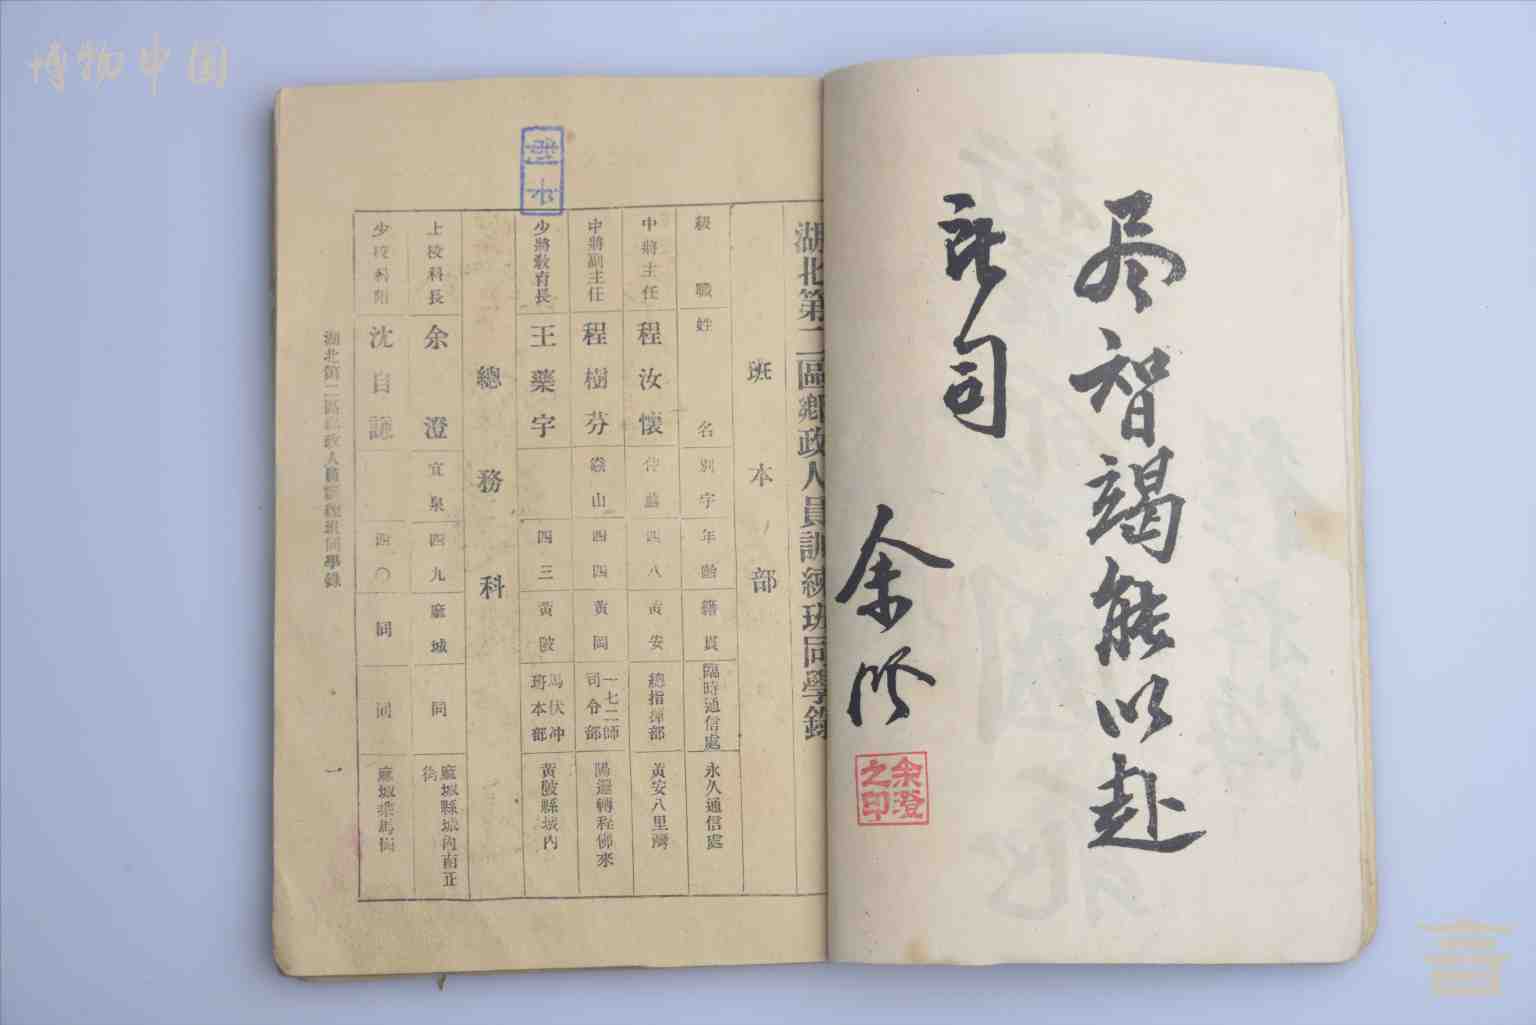 博物中国
尽智竭能以赴
所司
余澄
余澄之印
湖北第二區鄉政人員訓練班同學錄
班本部
級職 姓名 別字 年齡 籍貫 臨時通信處 永久通信處
中將主任 程汝懷 四八 黃安 總指揮部 黃安八里灣
中將副主任 程樹芬 四四 黃岡 一七二師司令部 陽邏轉程佛來
少將教育長 王藥宇 四三 黃陂 馬伏冲班本部 黃陂縣城內
總務科
上校科長 余澄 宜泉 四九 麻城 同 麻城縣城內南正街
少校科附 沈自謙 四〇 同 同 麻城
湖北第二區鄉政人員訓練班同學錄
一